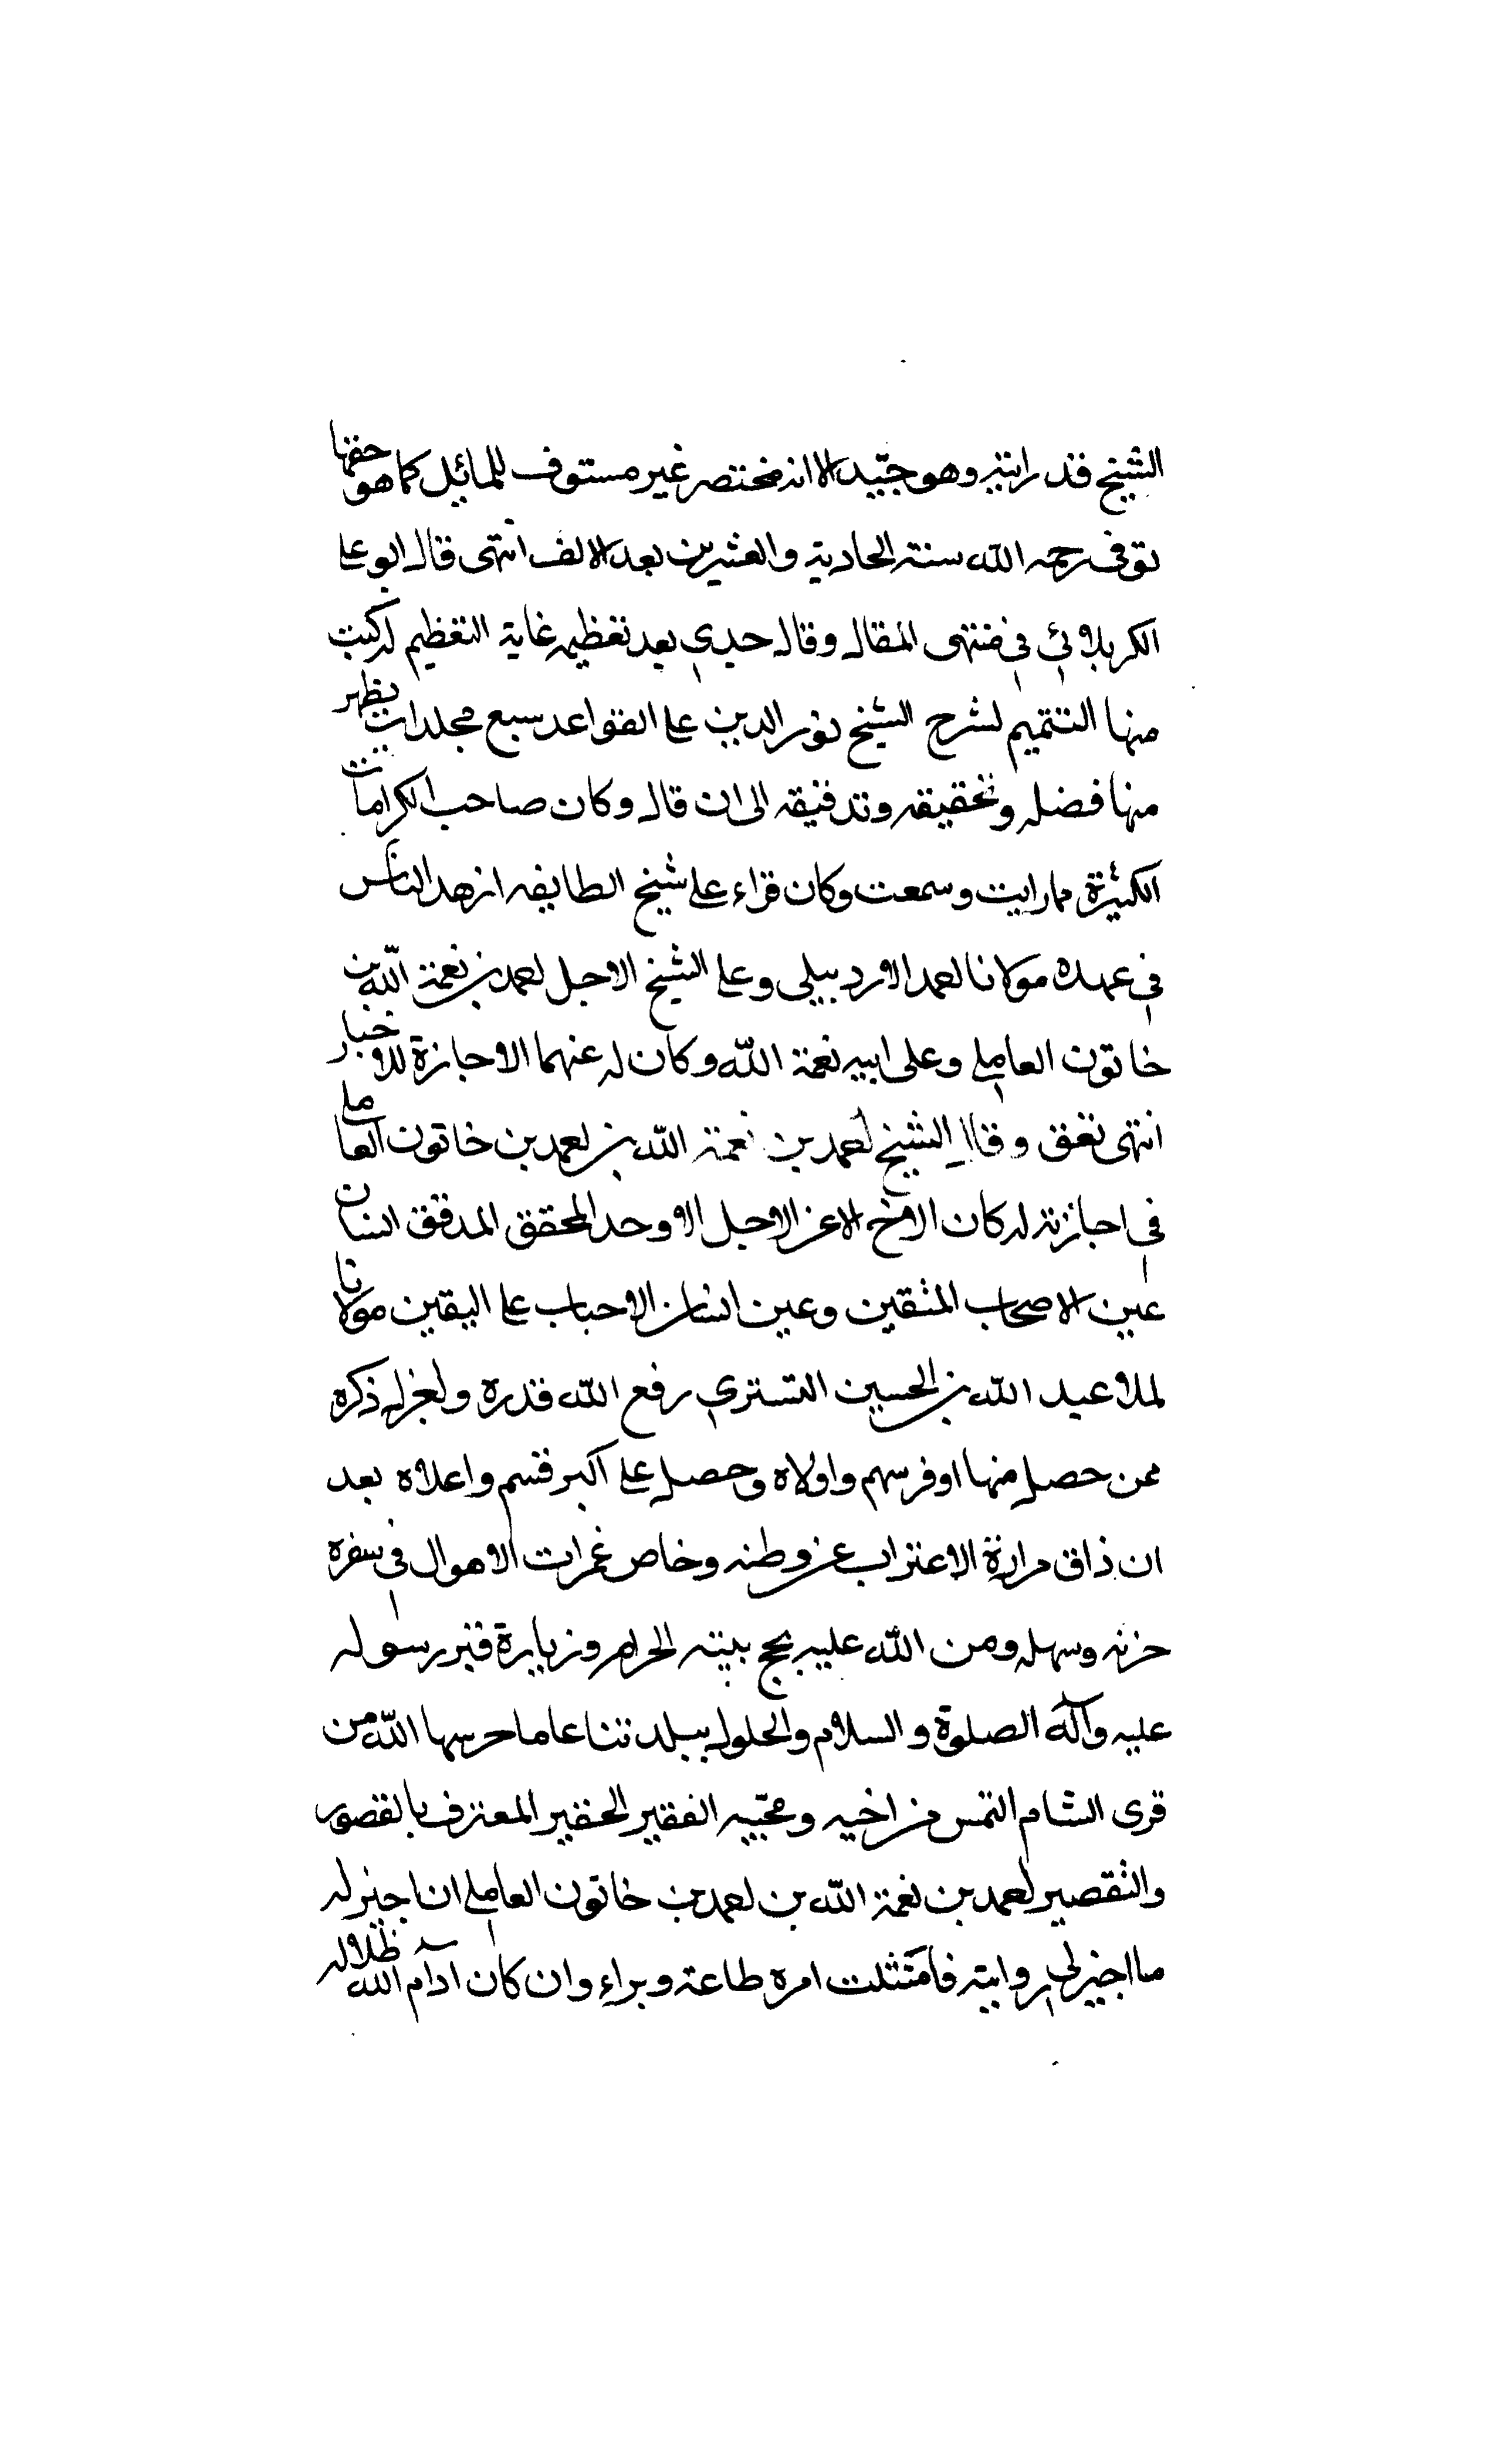 الشيخ قد رايته وهو جيّد الا انه مختصر غير مستوف للمايل كما هو حقها
توفى رحمه الله سنة الحادية والعشرين بعد الالف انتهى قال ابو علي
الكربلائي في منتهى المقال وقال جدي بعد تعظيمه غاية التعظيم له كتب
منها التتميم لشرح الشيخ نور الدين على القواعد سبع مجلدات يظهر
منها فضله وتحقيقه وتدقيقه الى ان قال وكان صاحب الكرامات
الكثيرة مما رايت وسمعت وكان قراء على شيخ الطايفه ازهد الناس
في عهده مولانا احمد الاردبيلي وعلى الشيخ الاجل احمد بن نعمة الله بن
خاتون العاملي وعلى ابيه نعمة الله وكان له عنهما الاجازة للاخبار
انتهى تعق وقال الشيخ احمد بن نعمة الله بن احمد بن خاتون العاملي
في اجازته له كان الاخ الاعز الاجل الاوحد المحقق المدقق انسان
عين الاصحاب المتقين وعين انسان الاحباب على اليقين مولانا
لملا عبد الله بن الحسين التستري رفع الله قدره ذكره
ممن حصل منها اوفر سهم واولاه وحصل على اكبر قسم واعلاه بعد
ان ذاق مرارة الاغتراب عن وطنه وخاص غمرات الاهوال في سفره
حزنه وسهله ومن الله عليه بحج بيته الحرام وزيارة قبر رسوله
عليه وآله الصلوة والسلام والحلول ببلدتنا عاما حرسها الله من
قرى الشام التمس من اخيه ومحبّه الفقير الحقير المعترف بالقصور
والتقصير احمد بن نعمة الله بن احمد بن خاتون العاملي ان اجيز له
ما اجيز لي روايته فامتثلت امره طاعة وبراء وان كان ادام الله ظلاله